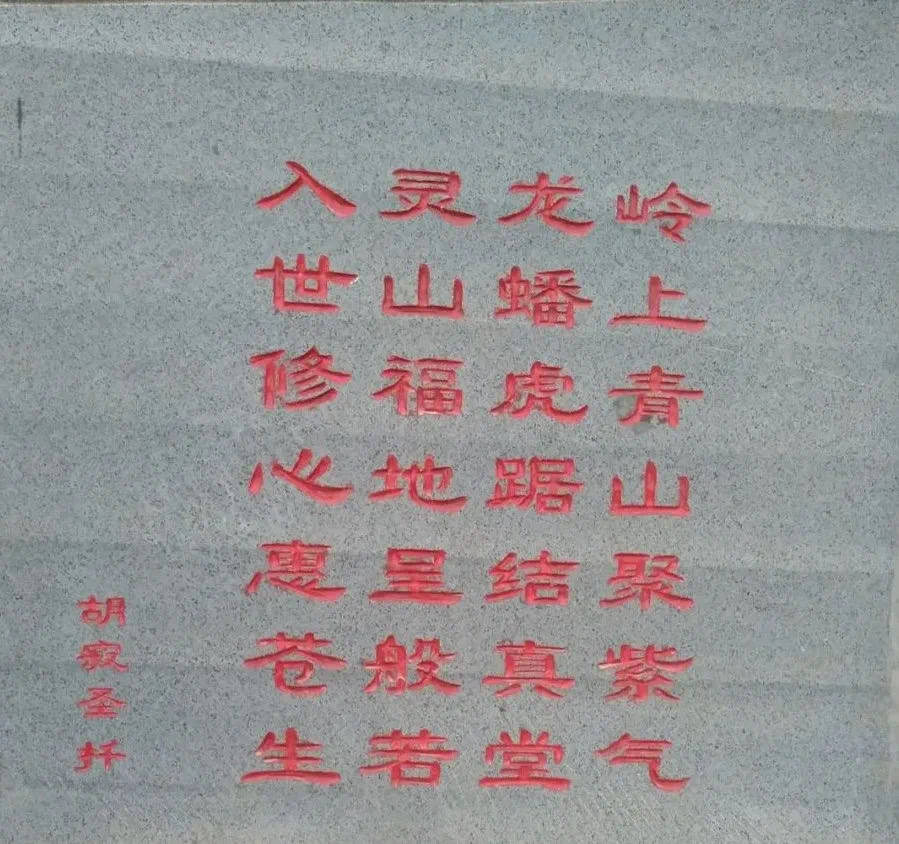 岭上青山聚紫气
龙蟠虎踞结真堂
灵山福地呈般若
入世修心惠苍生
胡寂圣托